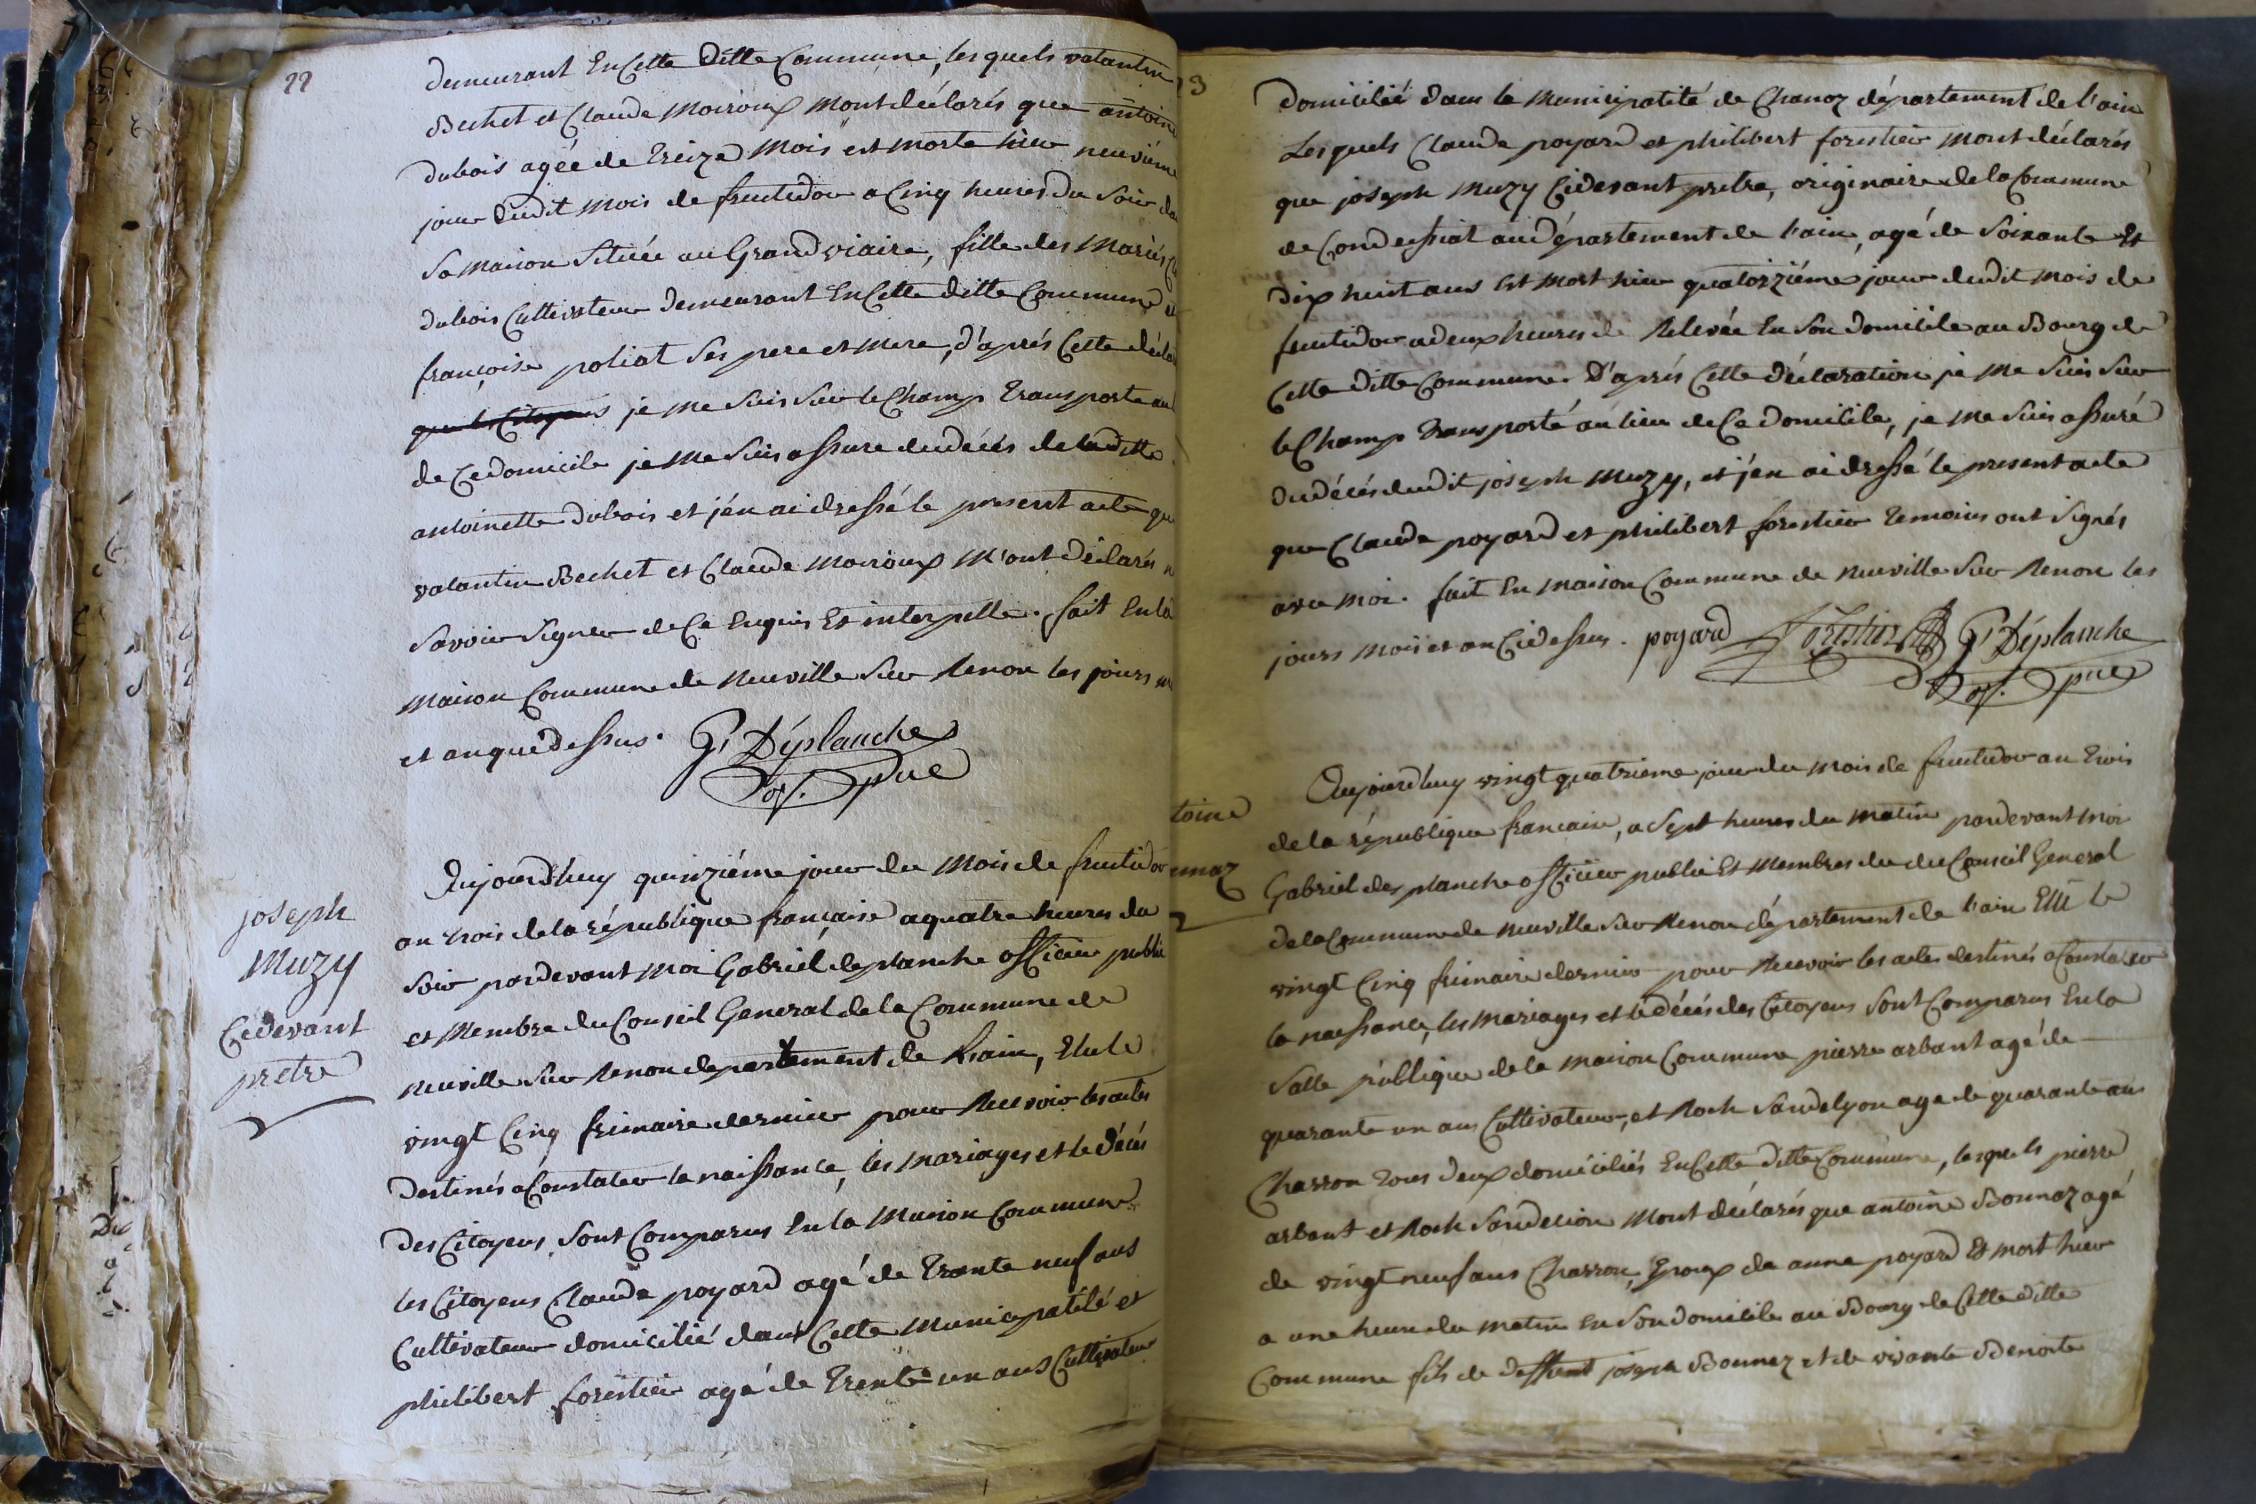 22
demeurant En Cette ditte Commune, lesquels valantin
Bechet et Claude Moiroux Mont déclarés que antoin
dubois agée de Treize Mois est morte hier neuviéme
jour dudit mois de fructidor a Cinq heures du Soir da
Sa maison Située au Grand viaire, fille des Mariés Cl
dubois Cultivateur demeurant En Cette ditte Commune et
françoise poliat Ses pere et mere, d'aprés Cette décla
que les Citoyens je me suis Sur le Champ Transporte au
de Ce domicile je me suis assure du décés de laditte
antoinette dubois et j'en ai dressé le present acte que
valantin Bechet et Claude Moiroux M'ont déclarés n
Savoir Signer de Ce Enquis Et interpelle. fait En la
maison Commune de Neuville Sur Renon les jours m
et an que dessus. G. Déplanche
of. pue
joseph
Muzy
Cidevant
pretre
Aujourd'huy quinziéme jour du Mois de fructidor
an trois de la république française a quatre heures du
Soir pardevant moi Gabriel deplanche officier public
et Membre du Conseil General de la Commune de
neuville Sur Renon departement de l'ain, Elu le
vingt Cinq frimaire dernier pour Recevoir les actes
destinés a Constater la naissance, les mariages et le décés
des Citoyens Sont Comparus En la Maison Commune
les Citoyens Claude poyard agé de Trante neuf ans
Cultivateur domicilié dans Cette Municipalité et
philibert forestier agé de Trente un ans Cultivateur
23
domicilié dans la Municipalité de Chanoz département de l'ain
Lesquels Claude poyard et philibert forestier Mont déclarés
que joseph Muzy Cidevant pretre, originaire de la Commune
de Condessiat au département de l'ain, agé de Soixante Et
dix huit ans Est Mort hier quatorziéme jour dudit mois de
fructidor a deux heures de Relevée En Son domicile au Bourg de
Cette ditte Commune. D'aprés Cette déclaration je Me Suis Sur
le Champ Transporté au lieu de Ce domicile, je me suis assuré
du décés dudit joseph Muzy, et j'en ai dressé le present acte
que Claude poyard et philibert forestier Temoins ont Signés
avec moi. fait En maison Commune de Neuville Sur Renon les
jours mois et an Cidessus. poyard forestier G. Déplanche
of. pue
toine
nnaz
Aujourd'huy vingt quatrieme jour du mois de fructidor an Trois
de la république francaise, a Sept heures du matin pardevant moi
Gabriel des planche officier public Et Membres du du Conseil General
de la Commune de neuville Sur Renon département de l'ain Elü le
vingt Cinq frimaire dernier pour Recevoir les actes destinés a Constater
la naissance, les mariages et le décés des Citoyens Sont Comparus En la
Salle publique de la maison Commune pierre arbant agé de
quarante un ans Cultivateur, et Roch Sandelyon age de quarante ans
Charron Tous deux domiciliés En Cette ditte Commune, lesquels pierre
arbant et Roch Sandelion Mont déclarés que antoine Bonnaz agé
de vingt neuf ans Charron, Epoux de anne poyard Est mort hier
a une heure du matin En Son domicile au Bourg de Cette ditte
Commune fils de deffunt joseph Bonnaz et de vivante Benoite